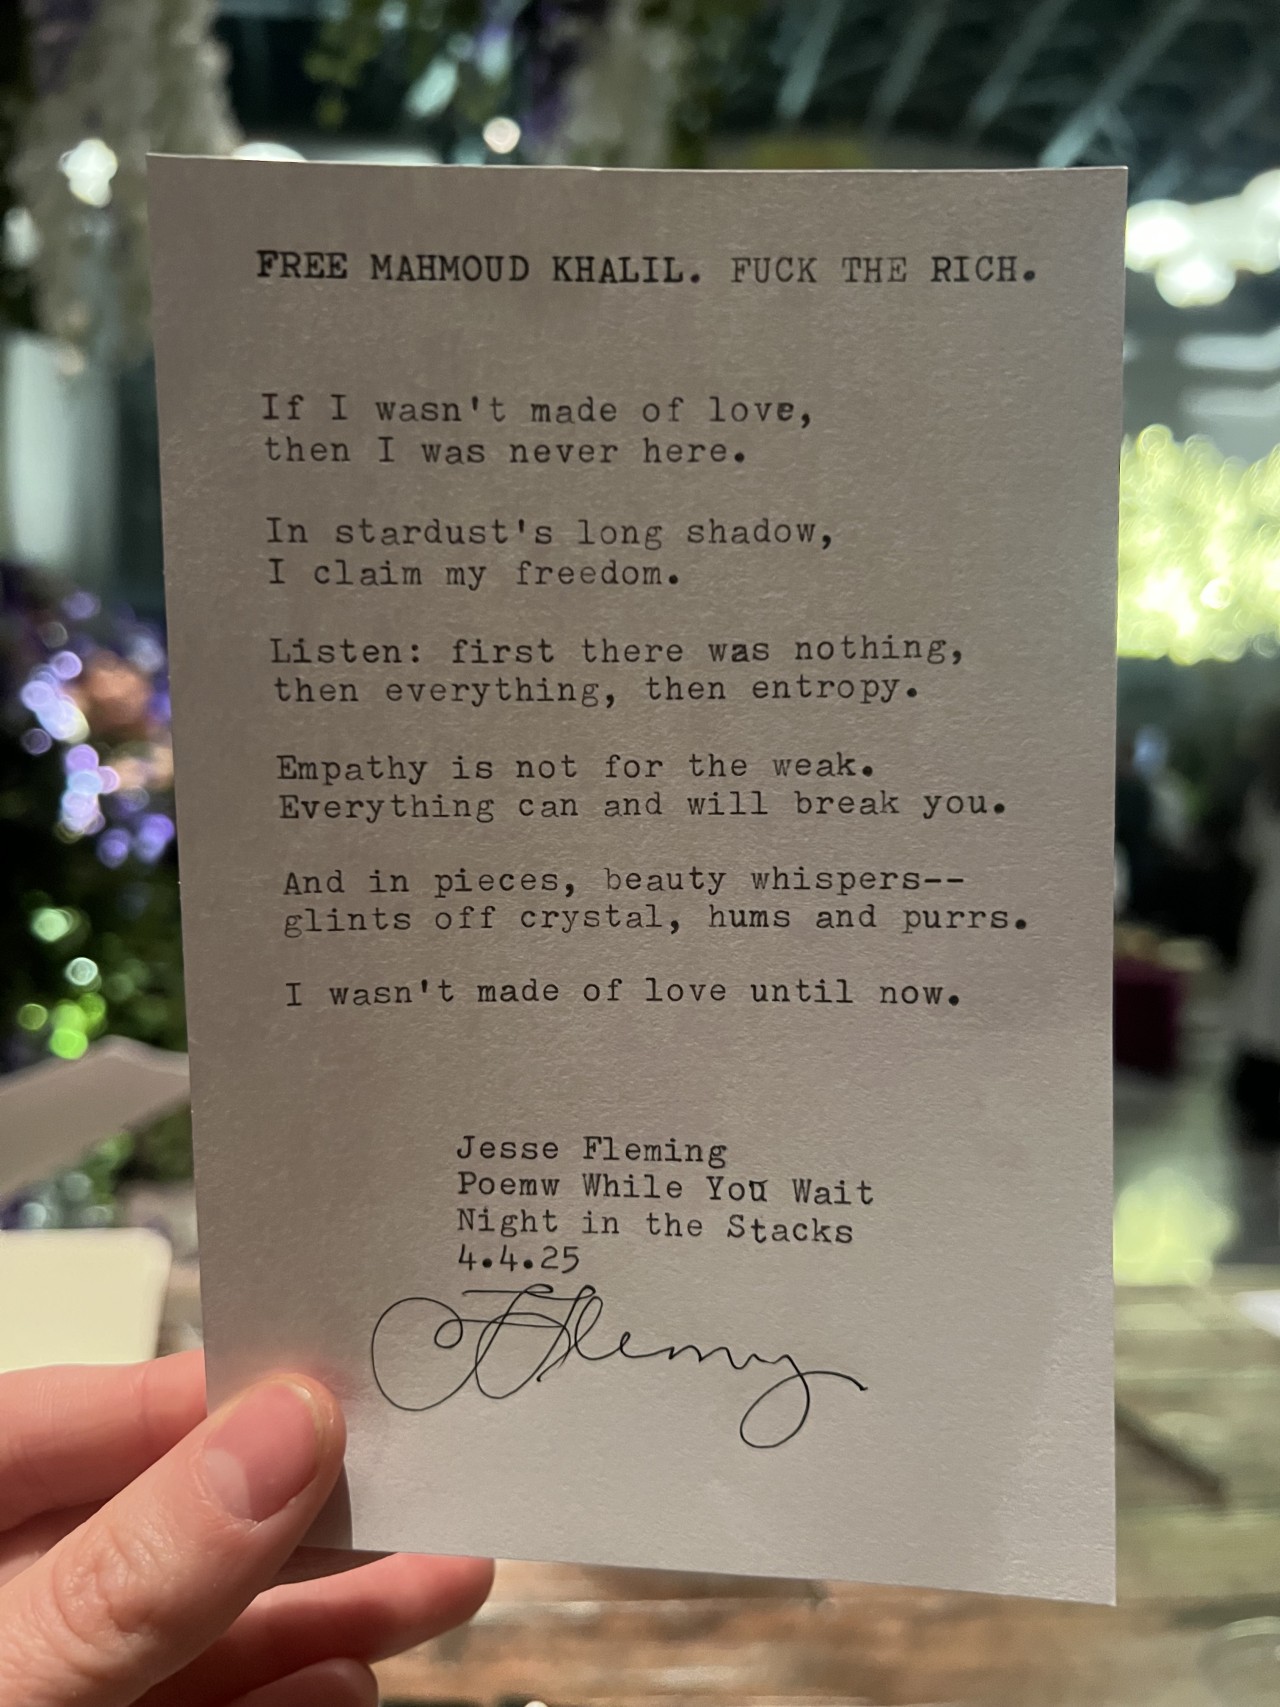 FREE MAHMOUD KHALIL. FUCK THE RICH.
If I wasn't made of love,
then I was never here.
In stardust's long shadow,
I claim my freedom.
Listen: first there was nothing,
then everything, then entropy.
Empathy is not for the weak.
Everything can and will break you.
And in pieces, beauty whispers--
glints off crystal, hums and purrs.
I wasn't made of love until now.
Jesse Fleming
Poemw While You Wait
Night in the Stacks
4.4.25
JFleming